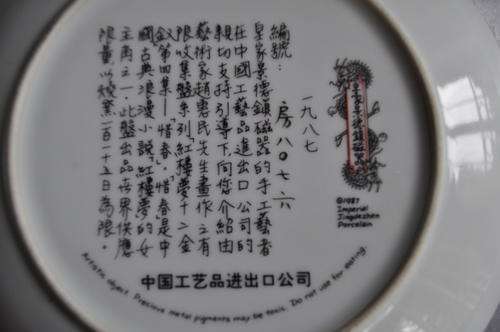 編號：
一九八七
房八〇七六
皇家景德鎮磁器的手工藝者
在中國工藝品進出口公司的
親切支持引導下向您介紹由
藝術家趙惠民先生畫作之有
限收集盤系列紅樓夢十二金
釵第四集—"惜春"，"惜春"是中
國古典浪漫小說"紅樓夢"的女
主角之一此盤出品世界供應
限量以燒窯一百一十五日為限。
©1987
Imperial
Jingdezhen
Porcelain
中国工艺品进出口公司
Artistic object. Precious metal pigments may be toxic. Do not use for eating.